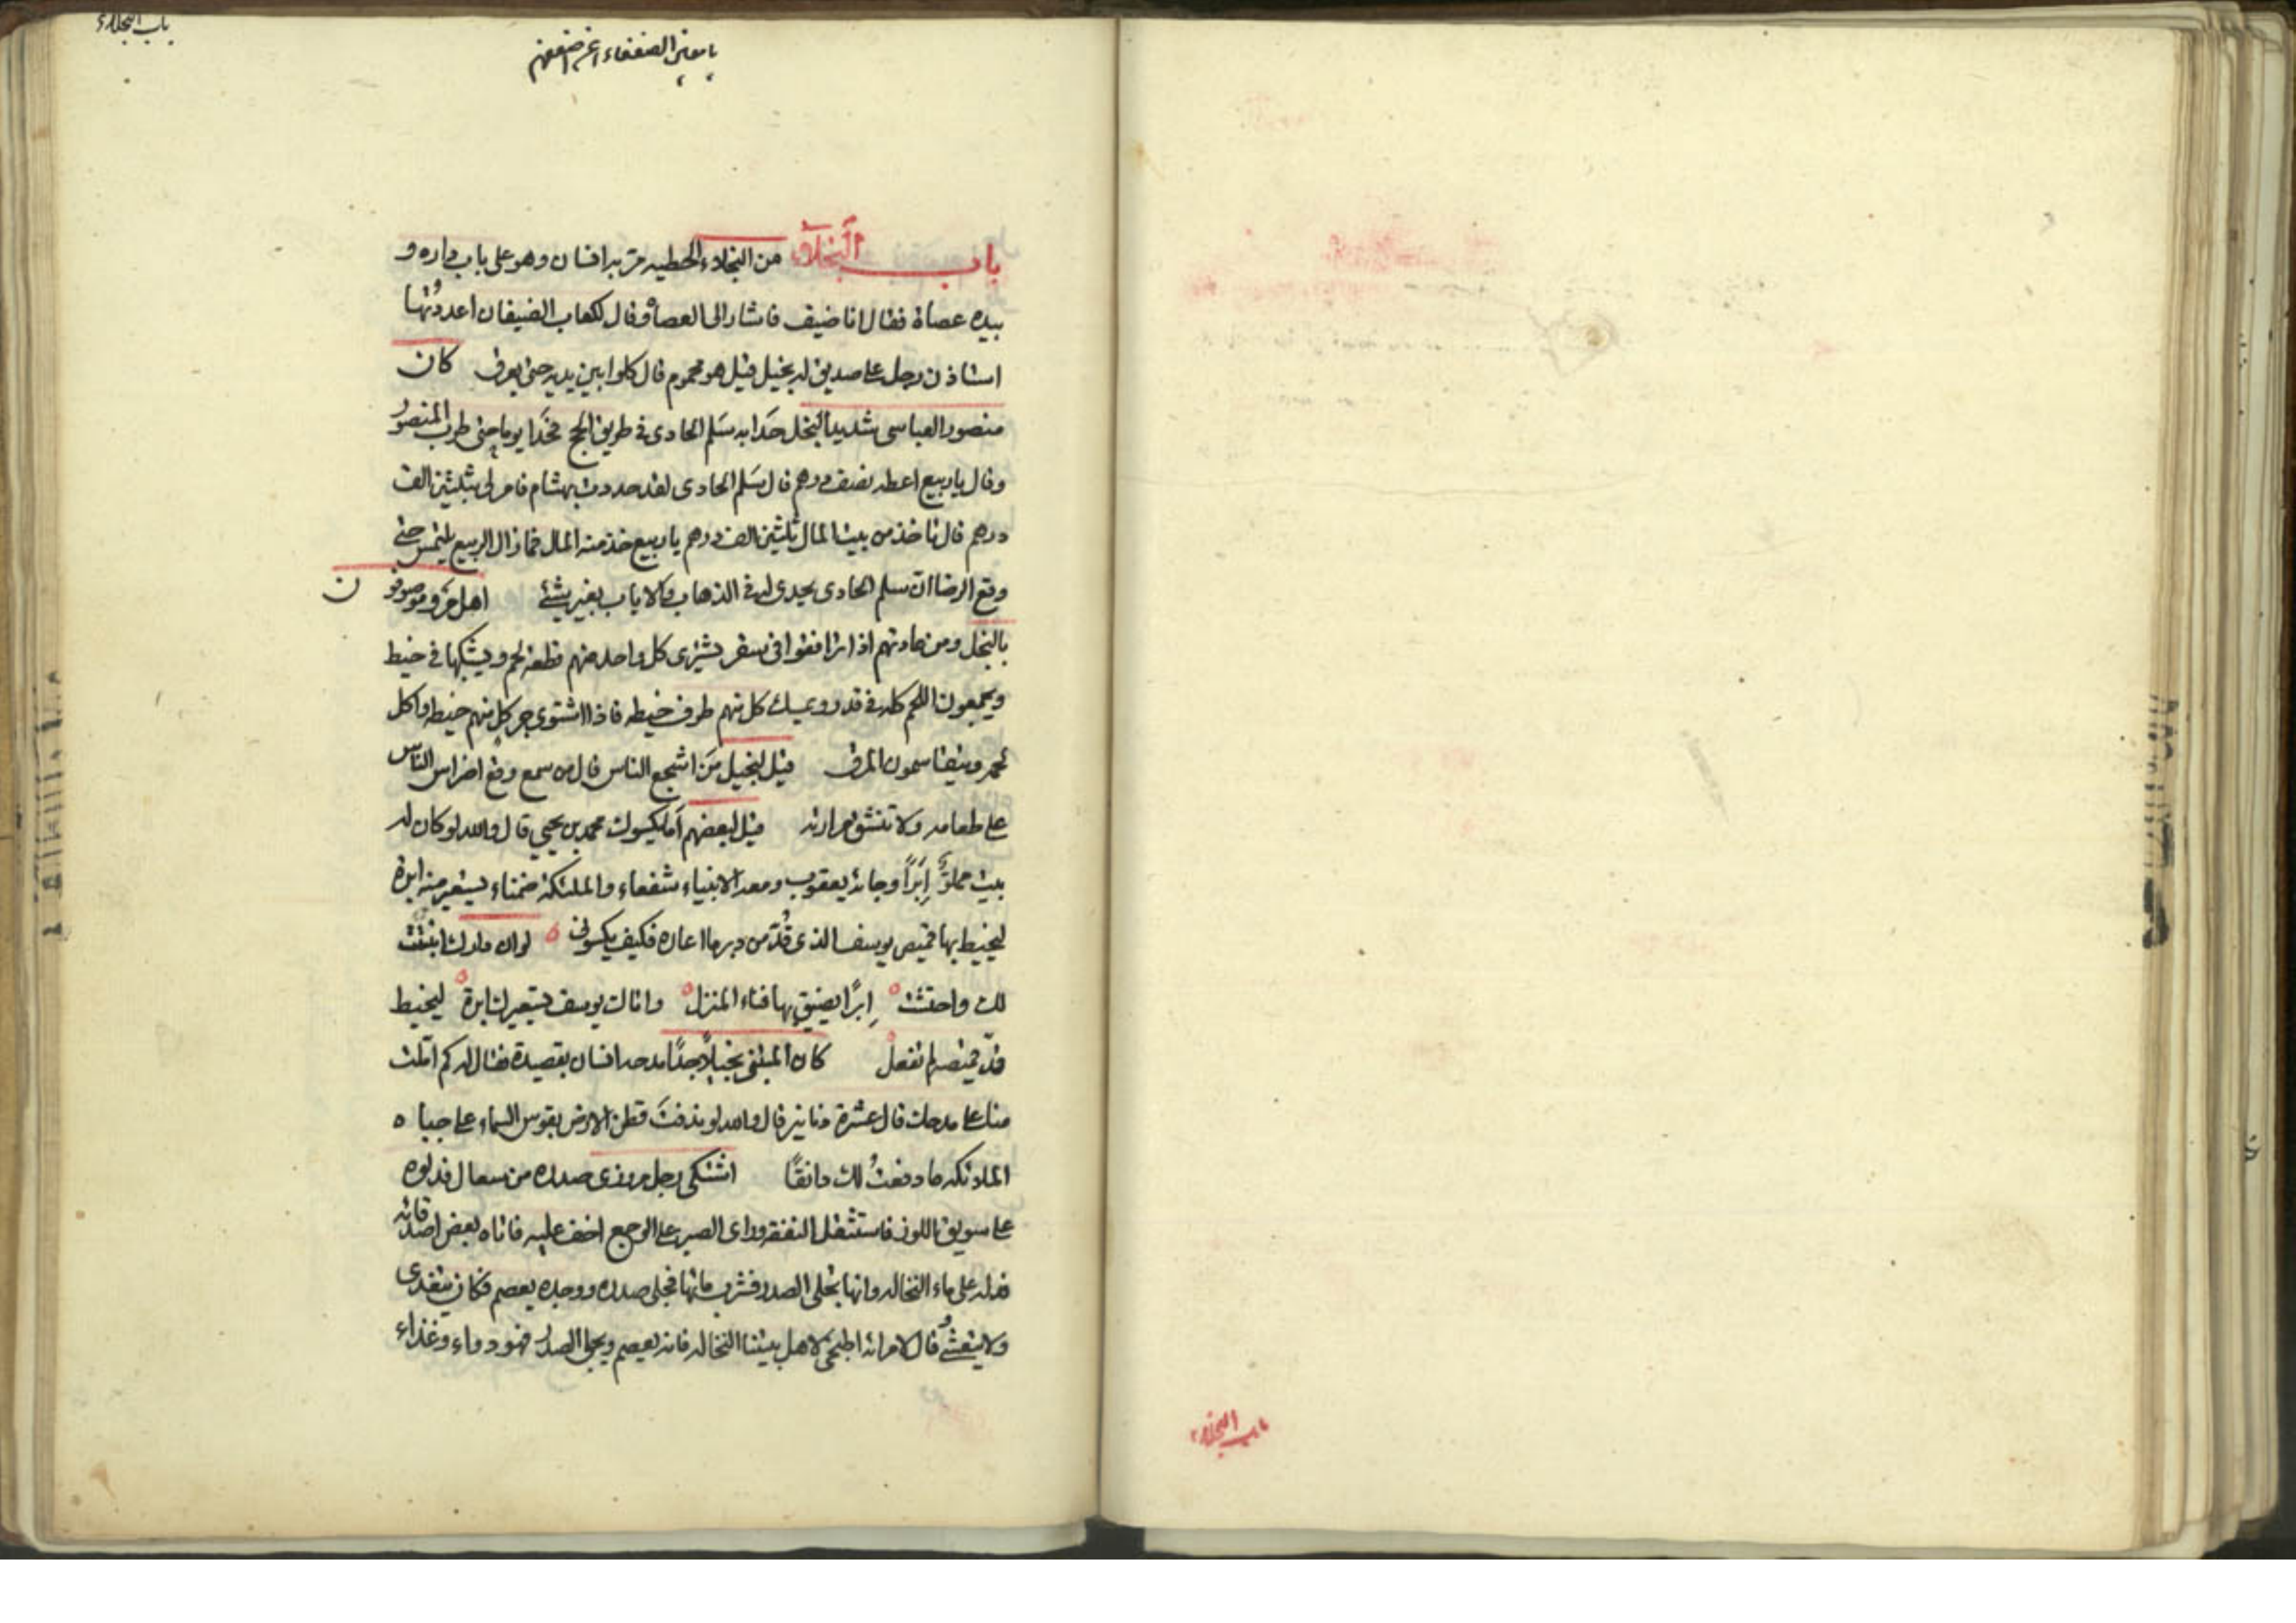 باب البخلاء
يا معين الضعفاء
باب البخلاء من البخلاء الحطيه مر به انسان وهو على باب داره و
بيده عصاة فقال انا ضيف فاشار الى العصاة وقال لكعاب الضيفان اعددتها
استاذن رجل على صديق له بخيل قيل هو محموم قال كلوا بين يديه حتى يعرق كان
منصور العباسى شديد البخل حدا به سلم الحادى فى طريق الحج فحدا يوما حتى طرب المنصور
وقال يا ربيع اعطه نصف درهم قال سلم الحادى لقد حدوت بهشام فامر لى بثلثين الف
درهم قال تاخذ من بيت المال ثلثين الف درهم يا ربيع خذ منه المال فما زال الربيع يلتمس حتى
وقع الرضا ان سلم الحادى يحدى له فى الذهاب والاياب بغير شئ اهل مرو موصوفون
بالبخل ومن عادتهم اذا ترافقوا فى سفر يشترى كل واحد منهم قطعة لحم ويشبكها فى خيط
ويجمعون اللحم كله فى قدر ويمسك كل منهم طرف خيطه فاذا اشتوى جر كل منهم خيطه واكل
لحمه ويتقاسمون المرق قيل لبخيل من اشجع الناس قال من سمع وقع اضراس الناس
على طعامه ولا تنشق مرارته قيل لبعضهم اما يكسوك محمد بن يحيى قال والله لو كان له
بيت مملو إبرا وجائه يعقوب ومعه الانبياء شفعاء والملئكة ضمناء يستعير منه ابرة
ليخيط بها قميص يوسف الذى قد من دبر ما اعاره فكيف يكسونى لو ان دارك انبتت
لك واحتشت إبرا يضيق بها فناء المنزل واتاك يوسف يستعيرك ابرة ليخيط
قد قميصه لم تفعل كان المتنبى بخيلا جدا مدحه انسان بقصيدة فقال له كم املت
منا على مدحك قال عشرة دنانير قال والله لو ندفت قطن الارض بقوس السماء على جباه
الملائكه ما دفعت لك دانقا اشتكى رجل مروزى صدره من سعال فدلوه
على سويق اللوز فاستثقل النفقه وراى الصبر على الوجع اخف عليه فاتاه بعض اصدقائه
فدله على ماء النخاله وانها تجلى الصدر فشرب مائها فجلى صدره ووجده يعصم فكان يتغدى
ولا يتعشى قال لامراته اطبخى لاهل بيتنا النخاله فانه يعصم ويجلى الصدر فهو دواء وغذاء
باب البخلاء